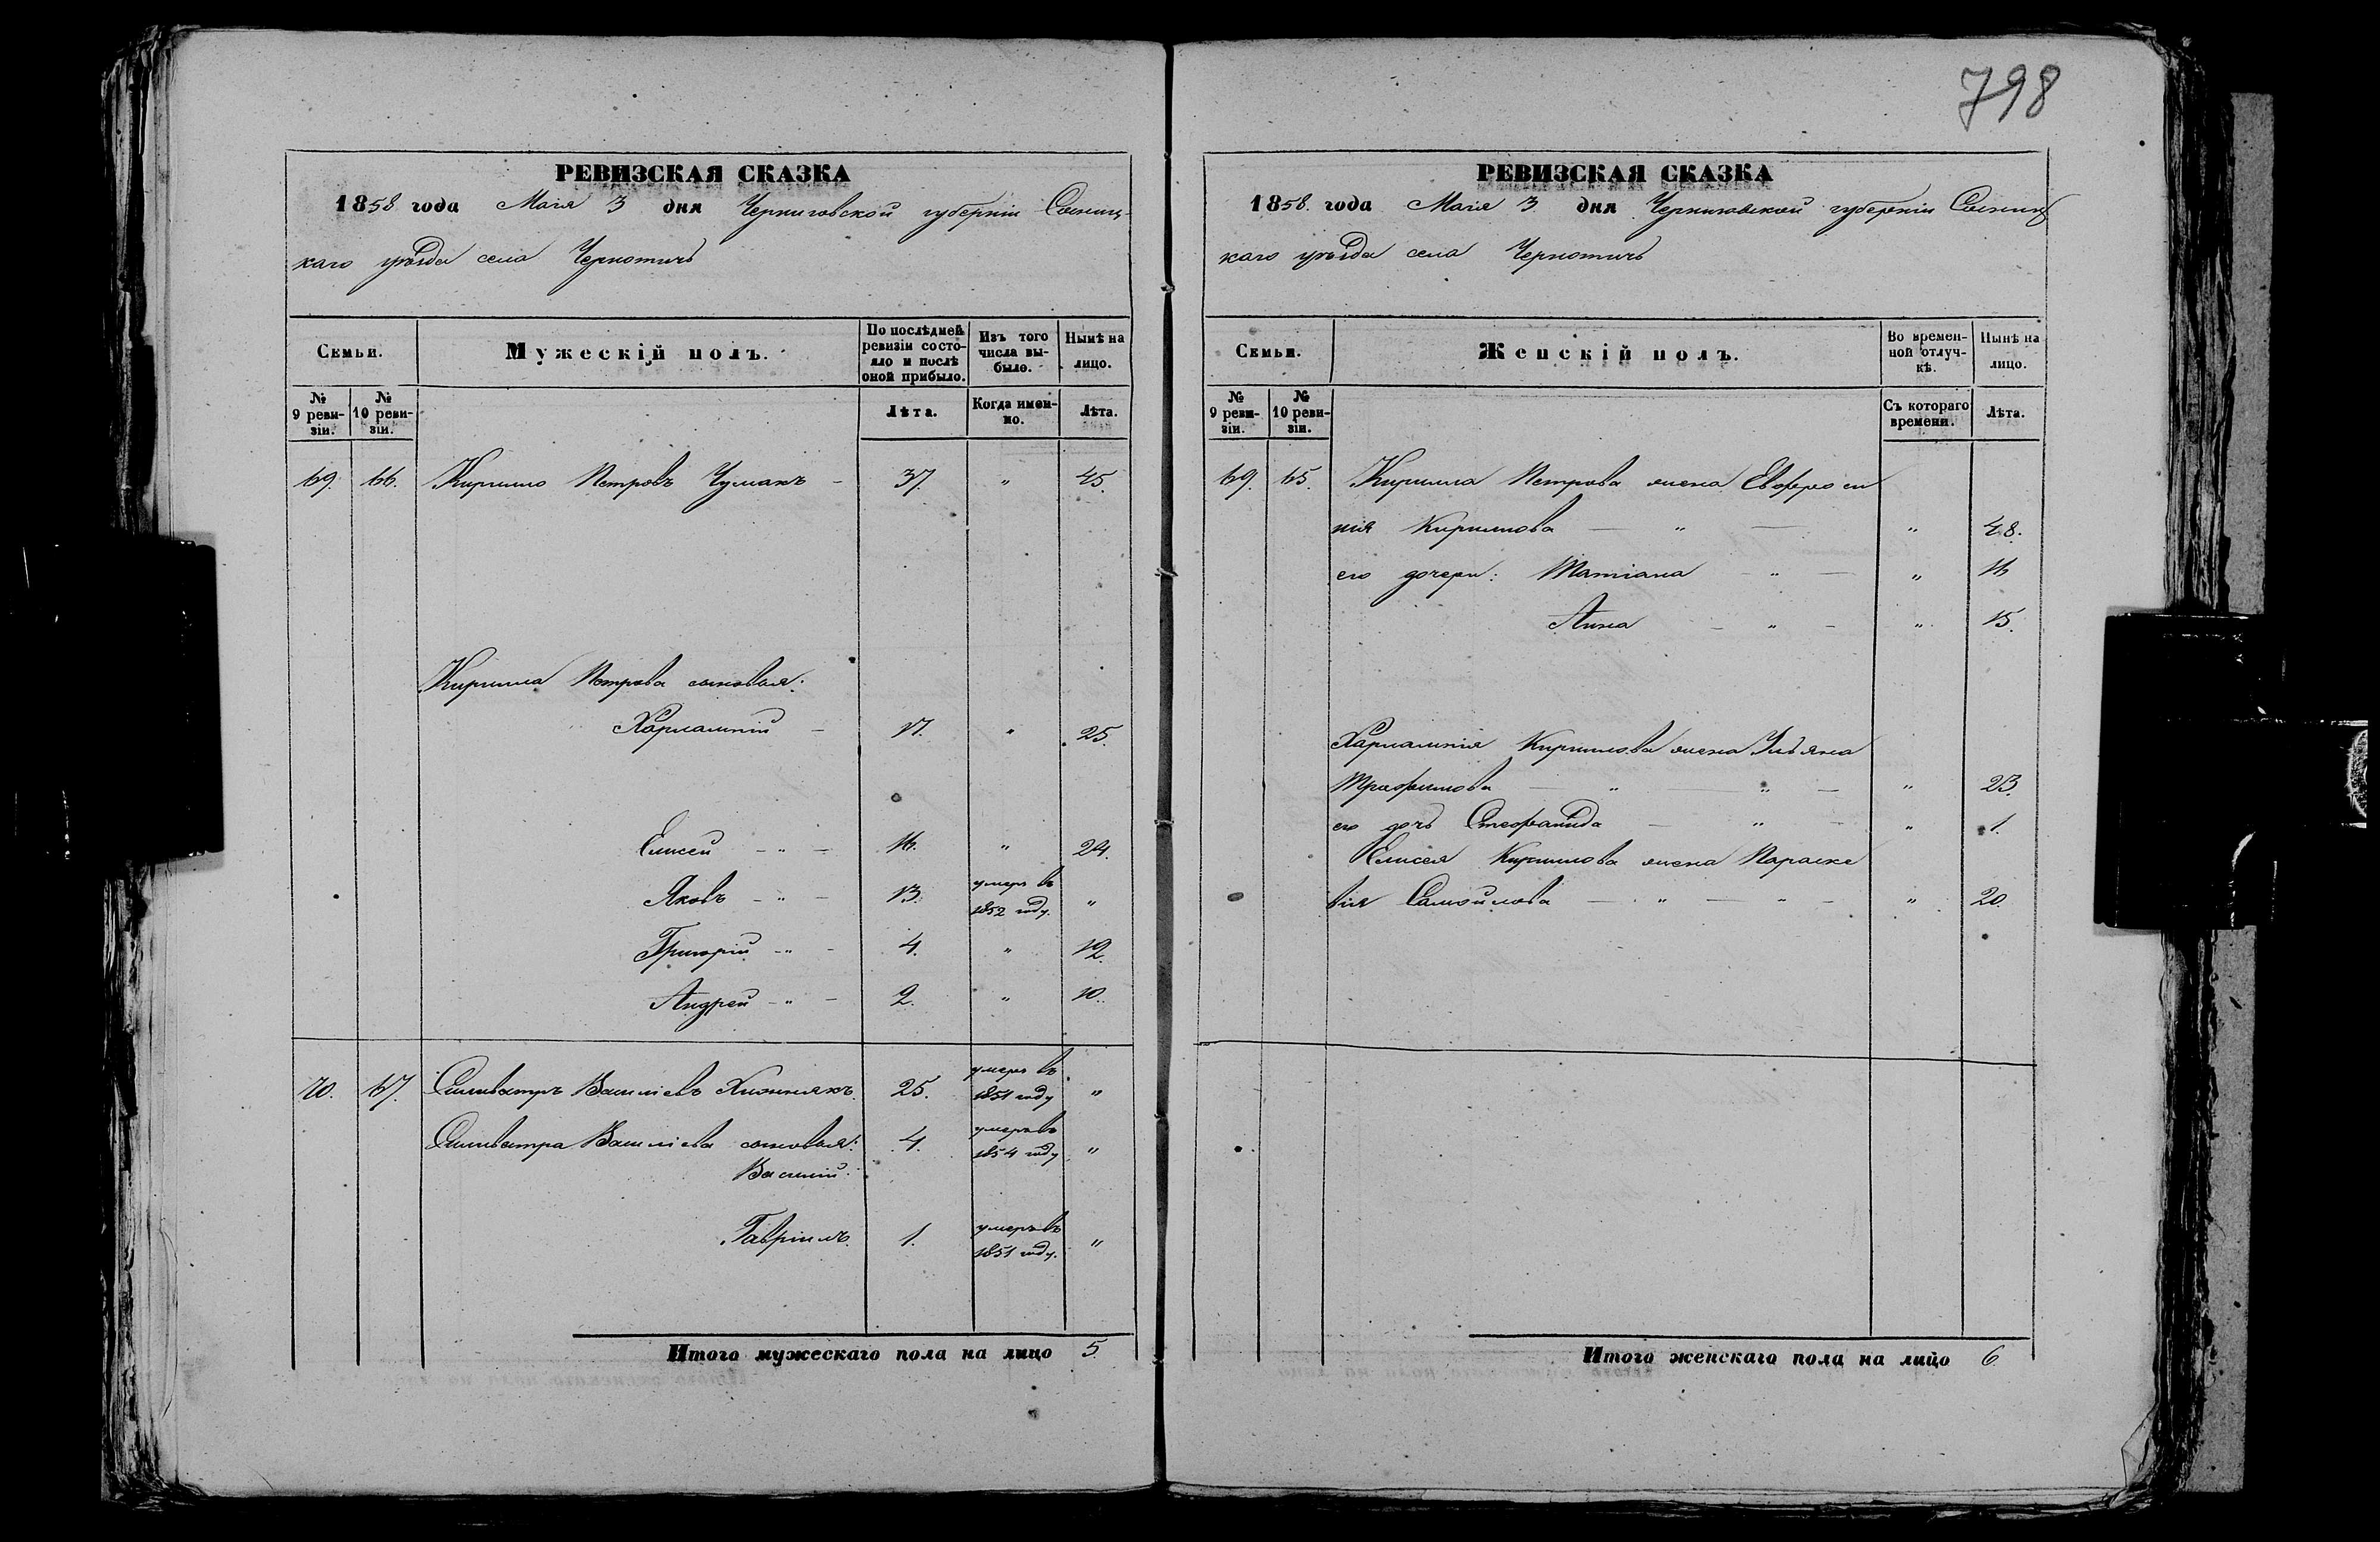 798
РЕВИЗСКАЯ СКАЗКА
1858 года Мая 3 дня Черниговской губерніи Сосниц-
каго уѣзда села Чернотичъ
Семьи.
Мужескій полъ.
По послѣдней ревизіи состояло и послѣ оной прибыло.
Изъ того числа выбыло.
Нынѣ на лицо.
№ 9 ревизіи.
№ 10 ревизіи.
Лѣта.
Когда именно.
Лѣта.
69. 66. Кирило Петровъ Чумакъ - 37. " 45.
Кирила Петрова сыновья:
Харлампій - 17. " 25.
Елисей - " - 16. " 24.
Яковъ - " - 13. умеръ въ 1852 году. "
Григорій - " - 4. " 12.
Андрей - " - 2. " 10.
70. 67. Сильвестръ Васильевъ Хижнякъ. 25. умеръ въ 1851 году "
Сильвестра Васильева сыновья: 4. умеръ въ 1854 году "
Василій.
Гавріилъ. 1. умеръ въ 1851 году. "
Итого мужескаго пола на лицо 5.
РЕВИЗСКАЯ СКАЗКА
1858. года Мая 3 дня Черниговской губерніи Сосниц
каго уѣзда села Чернотичъ
Семьи.
Женскій полъ.
Во временной отлучкѣ.
Нынѣ на лицо.
№ 9 ревизіи.
№ 10 ревизіи.
Съ котораго времени.
Лѣта.
69. 65. Кирила Петрова жена Евфроси
нія Кирилова — " — " 48.
его дочери: Татіана - " — " 16
Анна - " - " 15.
Харлампія Кирилова жена Ульяна
Трофимова — " — " — " 23.
его дочь Стефанида - " - " 1.
Елисея Кирилова жена Параске
вія Самойлова — " — " - " 20.
Итого женскаго пола на лицо 6